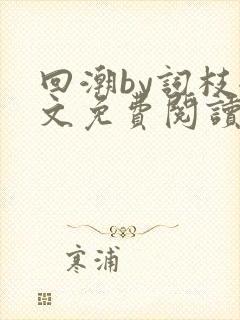 回潮by詞枝
文免費閱讀
寒浦